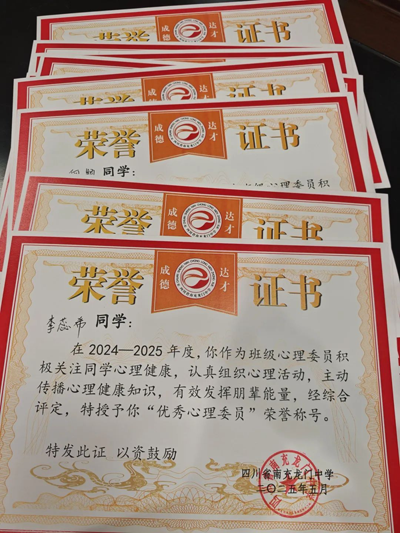 荣誉 成德 达才 证书
荣誉 成德 达才 证书
荣誉 成德 达才 证书
同学:
心理委员积
荣誉 成德 达才 证书
荣誉 成德 达才 证书
李蕊希 同学:
在2024—2025年度,你作为班级心理委员积
极关注同学心理健康,认真组织心理活动,主动
传播心理健康知识,有效发挥朋辈能量,经综合
评定,特授予你“优秀心理委员”荣誉称号。
特发此证 以资鼓励
四川省南充龙门中学
二〇二五年五月